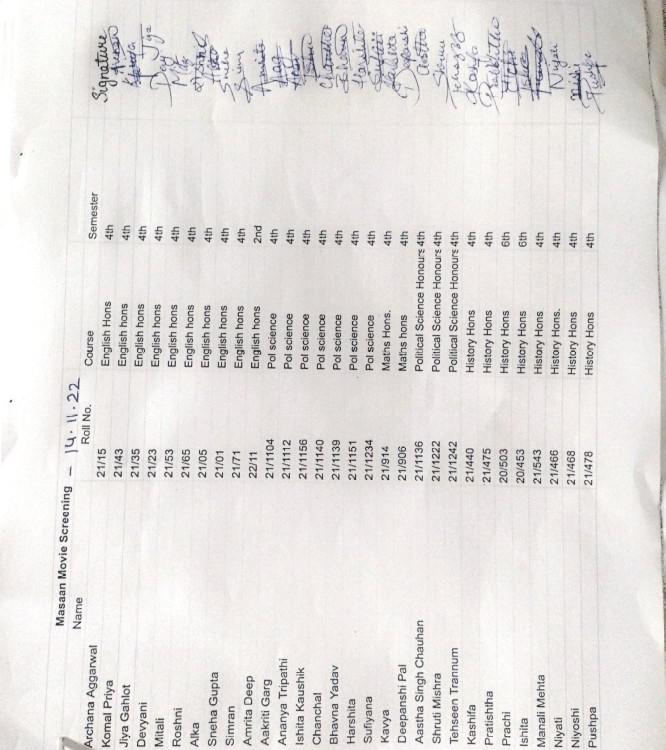 Masaan Movie Screening - 14.11.22
Name Roll No. Course Semester Signature
Archana Aggarwal 21/15 English Hons 4th
Komal Priya 21/43 English hons 4th
Jiya Gahlot 21/35 English hons 4th Jiya
Devyani 21/23 English hons 4th
Mitali 21/53 English hons 4th
Roshni 21/65 English hons 4th
Alka 21/05 English hons 4th
Sneha Gupta 21/01 English hons 4th
Simran 21/71 English hons 4th
Amrita Deep 22/11 English hons 2nd
Aakriti Garg 21/1104 Pol science 4th
Ananya Tripathi 21/1112 Pol science 4th
Ishita Kaushik 21/1156 Pol science 4th
Chanchal 21/1140 Pol science 4th
Bhavna Yadav 21/1139 Pol science 4th
Harshita 21/1151 Pol science 4th
Sufiyana 21/1234 Pol science 4th
Kavya 21/914 Maths Hons. 4th
Deepanshi Pal 21/906 Maths hons 4th
Aastha Singh Chauhan 21/1136 Political Science Honours 4th
Shruti Mishra 21/1222 Political Science Honours 4th
Tehseen Trannum 21/1242 Political Science Honours 4th
Kashifa 21/440 History Hons 4th
Pratishtha 21/475 History Hons 4th
Prachi 20/503 History Hons 6th
Ishita 20/453 History Hons 6th
Manali Mehta 21/543 History Hons 4th
Niyati 21/466 History Hons. 4th
Niyoshi 21/468 History Hons 4th
Pushpa 21/478 History Hons 4th